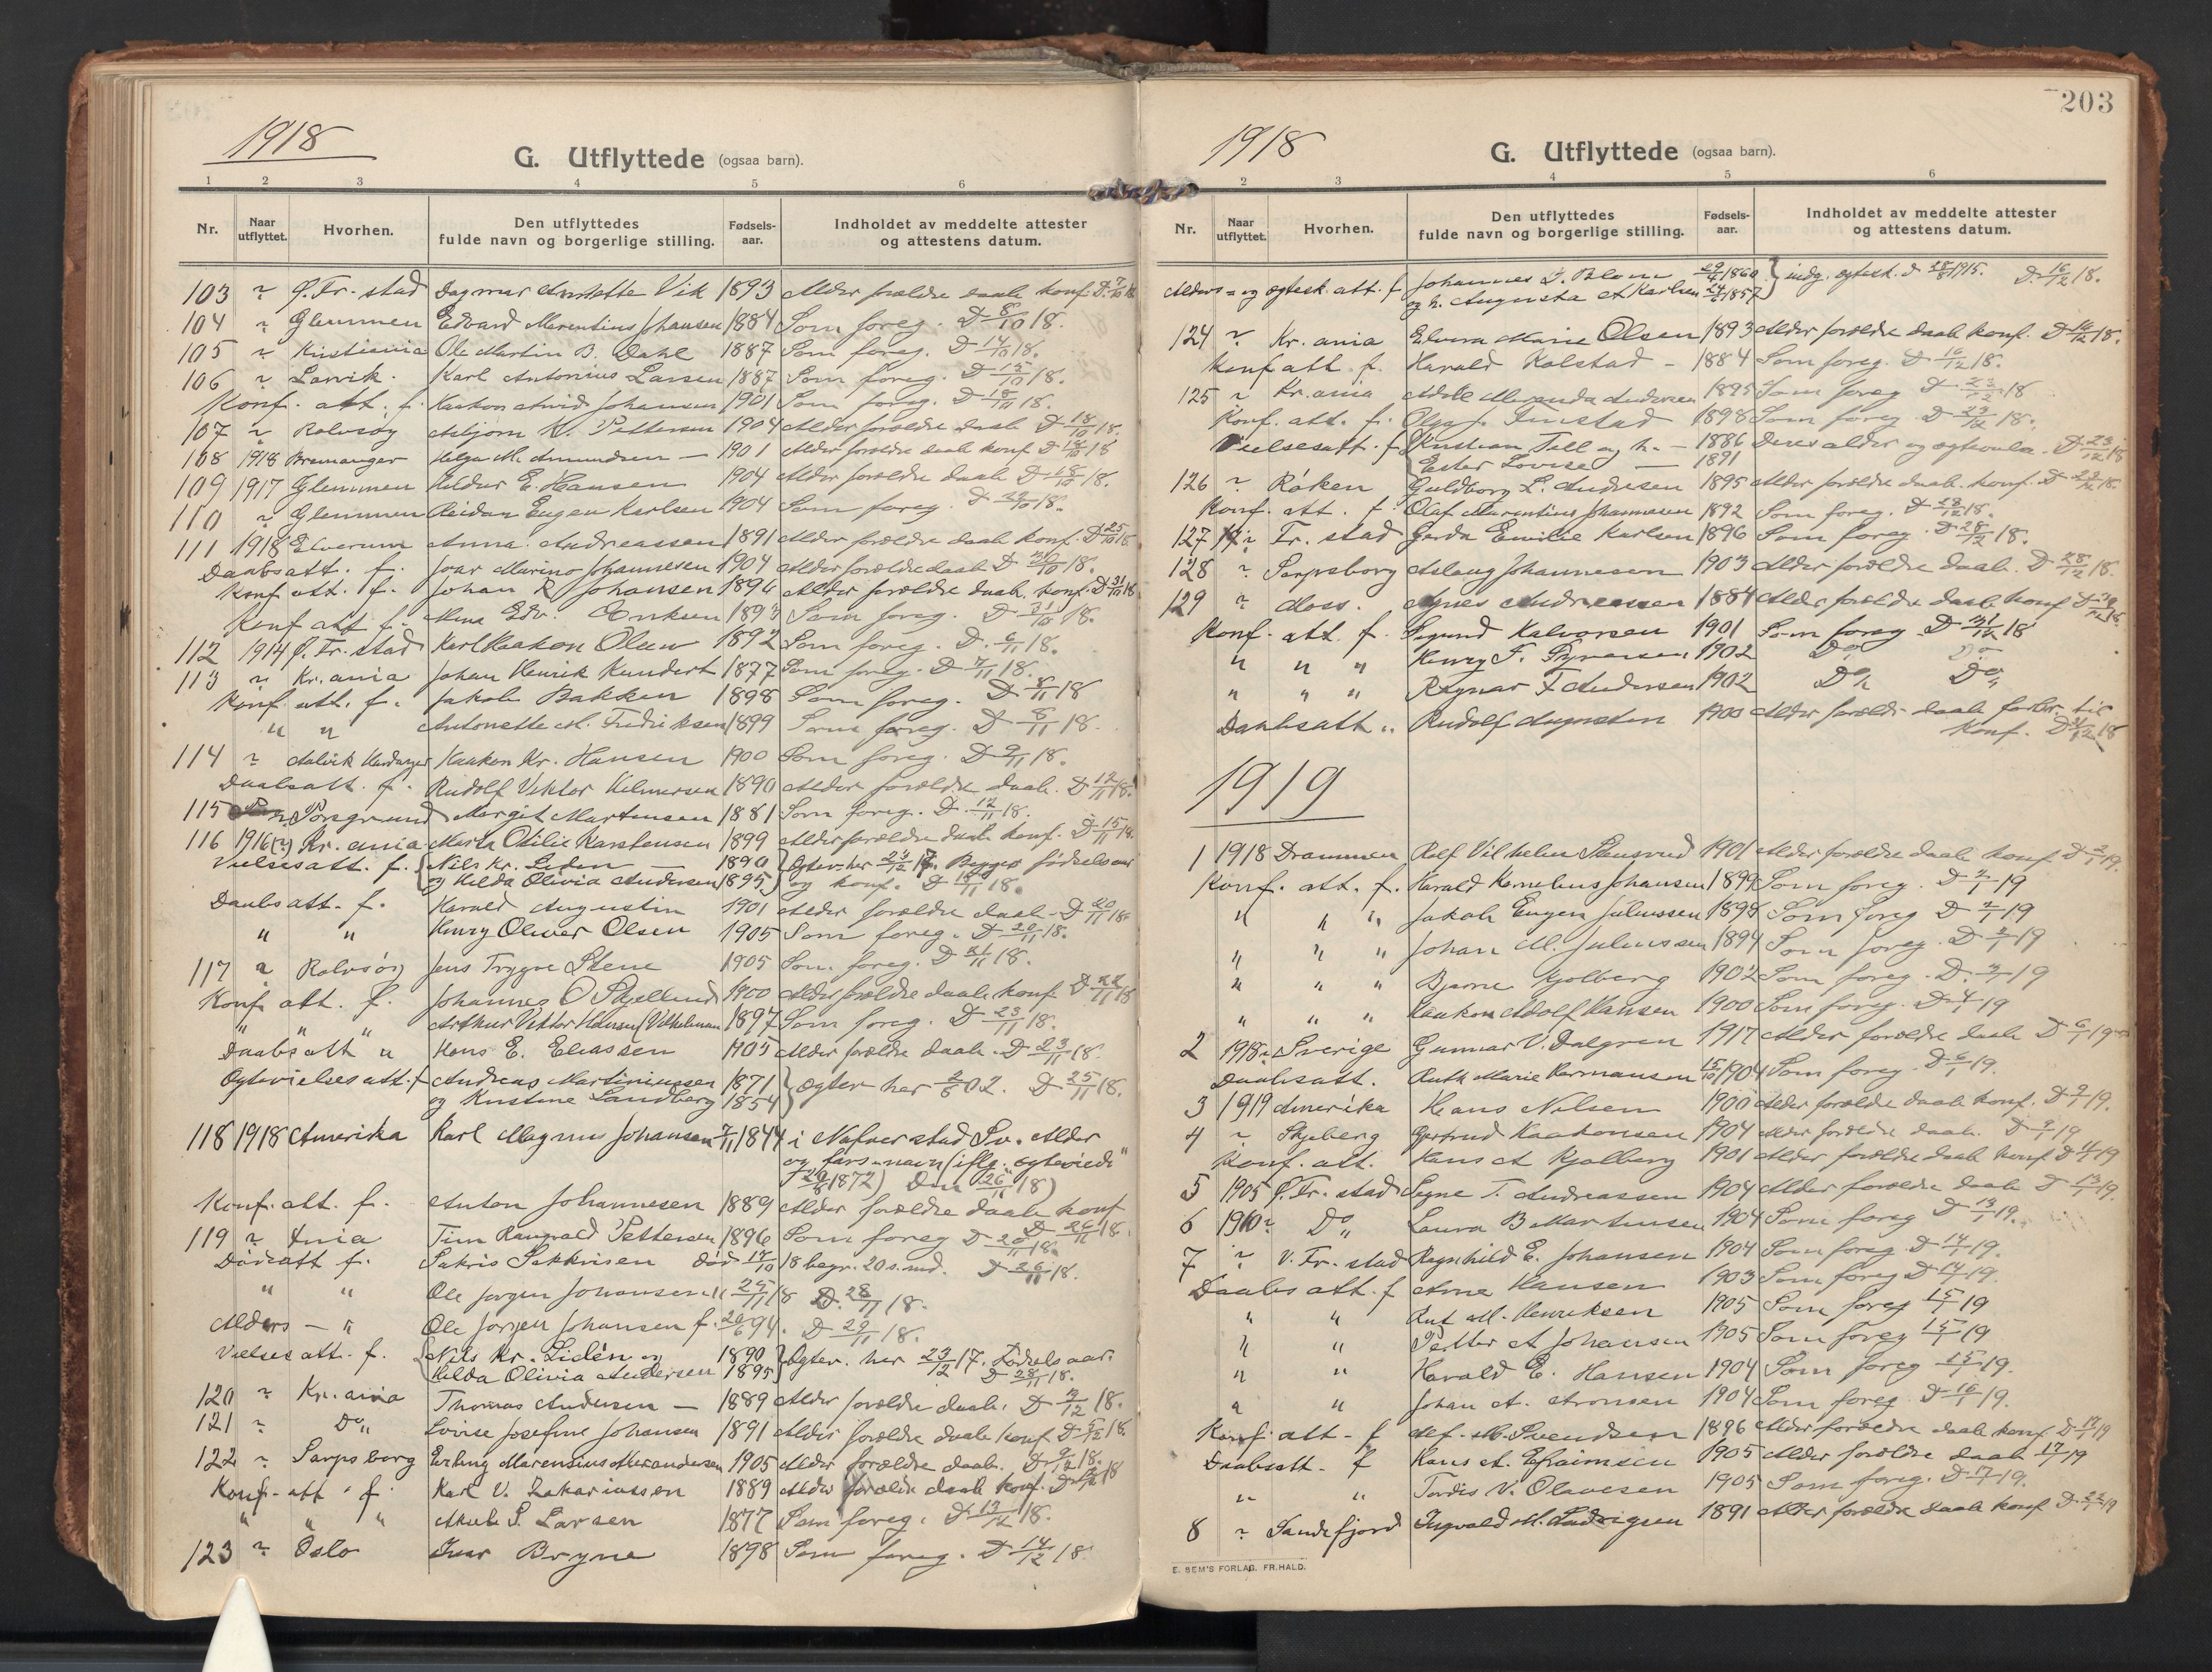 1918
G. Utflyttede (ogsaa barn).
1 2 3 4 5 6
Nr. Naar utflyttet. Hvorhen. Den utflyttedes fulde navn og borgerlige stilling. Fødsels-aar. Indholdet av meddelte attester og attestens datum.
103 " Ø. Fr.stad Dagmar Vik 1893 Alder forældre daab konf. D. 7/10 18
104 " Glemmen Edvard Marentius Johansen 1884 Som foreg. D 8/10 18.
105 " Kristiania Ole Martin B. Dahl 1887 Som foreg. D 14/10 18.
106 " Larvik. Karl Antonius Larsen 1887 Som foreg. D 15/10 18.
Konf. att. f. Haakon Arvid Johansen 1901 Som foreg. D 18/ 18.
107 " Rolvsøy Asbjørn K. Pettersen 1904 Alder forældre daab D 18/10 18.
108 1918 Bremanger Helga M. Amundsen — 1901 Alder forældre daab konf D 18/10 18
109 1917 Glemmen Hildur E. Hansen 1904 Alder forældre daab D 18/10 18.
110 " Glemmen Reidar Eugen Karlsen 1904 Som foreg. D 24/10 18.
111 1918 Elverum Anna Andreassen 1891 Alder forældre daab konf. D 25/10 18
Daabsatt. f. Ivar Marino Johannesen 1904 Alder forældre daab D /10 18.
Konf. att. f. Johan R Johansen 1894 Alder forældre daab. konf. D 31/10 18
Konf att f. Edv. Eriksen 1893 Som foreg. D 31/10 18.
112 1914 Ø. Fr. stad Karl Haakon Olsen 1892 Som foreg. D. 6/11 18.
113 " Kr.ania Johan Henrik Kundert 1877 Som foreg. D 7/11 18.
Konf. att. f. Jakob Bakken 1898 Som foreg. D 8/11 18
" " Antonette M. Fredriksen 1899 Som foreg. D 8/11 18.
114 " Aalvik Hardanger Haakon Kr. Hansen 1900 Som foreg. D 9/11 18.
Daabsatt. f. Rudolf Viktor Helmersen 1890 Alder forældre daab. D 12/11 18.
115 " Porsgrund Margit Martinsen 1881 Som foreg. D. 12/11 18.
116 1916(?) Kr.ania Marta Otilie Karstensen 1899 Alder forældre daab konf. D 15/11 18.
Vielsesatt. f. Nils Kr. Liden — 1890 Ægtev. her 23/12 17. Begges fødselsaar
og Hilda Olivia Andersen 1895 og konf. D 18/11 18.
Daabs att. f. Harald Augustin 1901 Alder forældre daab D 20/11 18.
" " Henry Oliver Olsen 1905 Som foreg. D 20/11 18.
117 " Rolvsøy Jens Trygve Stene 1905 Som foreg. D 21/11 18.
Konf att. f. Johannes O Skjellund 1900 Alder forældre daab konf D 22/11 18
" " " Arthur Viktor (Vilhelmsen 1897 Som foreg. D 23/11 18.
Daabsatt " Hans E. Eliassen 1905 Alder forældre daab. D 23/11 18.
Ægtevielsesatt. f Andreas Martiniussen 1871 ægtev her 2/8 02. D 25/11 18.
og Kristine Sandberg 1854
118 1918 Amerika Karl Magnus Johansen 7/11 1844 i Sv. Alder
og fars-navn (iflg. "ægteviede"
20/8 1872) Den 26/11 18)
Konf. att. f. Anton Johannesen 1889 Alder forældre daab konf
D 26/11 18.
119 " Tim Rangvald Pettersen 1896 Som foreg D 26/11 18.
Dødsatt f. Sakris Sakkrisen død 17/10 18 begr. 20 s.md. D 26/11 18.
" " Ole Jørgen Johansen " 25/11 18 D. 28/11 18.
Alders — " Ole Jørgen Johansen f. 20/6 94. D 29/11 18.
Vielses att. f. Nils Kr. Lidén og 1890 Ægtev. her 23/12 17. Fødselsaar.
Hilda Olivia Andersen 1895 D 28/11 18.
120 " Kr.ania Thomas Andersen — 1889 Alder forældre daab. D 3/12 18.
121 " Do " Lovise Josefine Johansen 1891 Alder forældre daab konf D 5/12 18.
122 " Sarpsborg Erling Marensius Alexandersen 1905 Alder forældre daab. D 9/12 18.
Konf.-att " f. Karl V. Zakariassen 1889 Alder forældre daab konf. D 12/12 18
" " " Aksel S. Larsen 1877 Som foreg. D 13/12 18.
123 " Oslo Ivar Bryne 1898 Som foreg. D 14/12 18.
203
1918
G. Utflyttede (ogsaa barn).
2 3 4 5 6
Nr. Naar utflyttet. Hvorhen. Den utflyttedes fulde navn og borgerlige stilling. Fødsels-aar. Indholdet av meddelte attester og attestens datum.
Alders = og ægtesk. att. f Johannes J. Blom 29/4 1860 indg. ægtesk. d 28/8 1915. D. 16/12 18.
og h. Augusta A Karlsen 24/2 1857
124 " Kr.ania Elvera Marie Olsen 1893 Alder forældre daab konf. D 16/12 18.
Konf att. f. Harald Kolstad - 1884 Som foreg. D 16/12 18.
125 " Kr.ania Andersen 1895 Som foreg D 23/12 18
Konf. att. f. Olga J. Finstad 1898 Som foreg D 23/12 18.
Vielsesatt. f. Kristian Tell og h. — 1886 Deres alder og ægtevielse. D 23/12 18
Ester Lovise — 1891
126 " Røken Guldborg L. Andresen 1895 Alder forældre daab. konf. D 23/12 18.
Konf. att. f. Olaf Marentius Johannesen 1892 Som foreg. D 28/12 18.
127 " Fr. stad Gerda Emilie Karlsen 1896 Som foreg. D 28/12 18.
128 " Sarpsborg Aslaug Johannesen 1903 Alder forældre daab. D 28/12 18.
129 " Moss. Agnes Andreassen 1884 Alder forældre daab konf D 30/12 18.
Konf. att. f. Sigurd Halvorsen 1901 Som foreg D 31/12 18
" " " Henry F. 1902 Do " Do
" " " Ragnar F Andersen 1902 Do " Do "
Daabsatt " Rudolf Augustin 1900 Alder forældr daab forber. til
Konf. D 31/12 18
1919
1 1918 Drammen Rolf Vilhelm Stensrud 1901 Alder forældre daab konf D 2/1 19.
Konf. att. f. Harald Kornelius Johansen 1899 Som foreg. D 2/1 19
" " " Jakob Eugen Juliussen 1898 Som foreg D 2/1 19
" " " Johan M. Juliussen 1894 Som foreg. D 2/1 19
" " " Bjarne Kjølberg 1902 Som foreg. D. 3/1 19
" " " Haakon Adolf Hansen 1900 Som foreg. D 4/1 19
2 1918 " Sverige Gunnar V. Dalgren 1917 Alder forældre daab D 6/1 19
Daabsatt. Ruth Marie Hermansen 15/10 1904 Som foreg. D 6/1 19.
3 1919 Amerika Hans Nilsen 1900 Alder forældre daab konf. D 9/1 19.
4 " Skjeberg Gertrud Haakonsen 1904 Alder forældre daab. D 9/1 19
Konf. att. Hans A Kjølberg 1901 Alder forældre daab konf D 11/1 19
5 1905 Ø. Fr. stad Signe T. Andreassen 1904 Alder forældre daab D 13/1 19.
6 1910 " Do " Laura B Martinsen 1904 Som foreg D 13/1 19.
7 " V. Fr. stad Ragnhild E. Johansen 1904 Som foreg. D 14/1 19.
Daabs att. f Arne Hansen 1903 Som foreg D 14/1 19.
" " Rut M. Henriksen 1905 Som foreg 15/1 19
" " Petter A Johansen 1905 Som foreg 15/1 19
" " Harald E. Hansen 1904 Som foreg 15/1 19.
" " Johan A. Aronsen 1904 Som foreg. D 16/1 19.
Konf. att - f Alf. M. Svendsen 1896 Alder forældre daab konf D 17/1 19
Daabsatt - f Hans A. Efraimsen 1905 Alder forældre daab 17/1 19
" " Tordis V. Olavesen 1905 Som foreg. D 17/1 19.
8 " Sandefjord Ingvald M. Ludvigsen 1891 Alder forældre daab konf D 22/1 19
E. SEM'S FORLAG. FR.HALD.